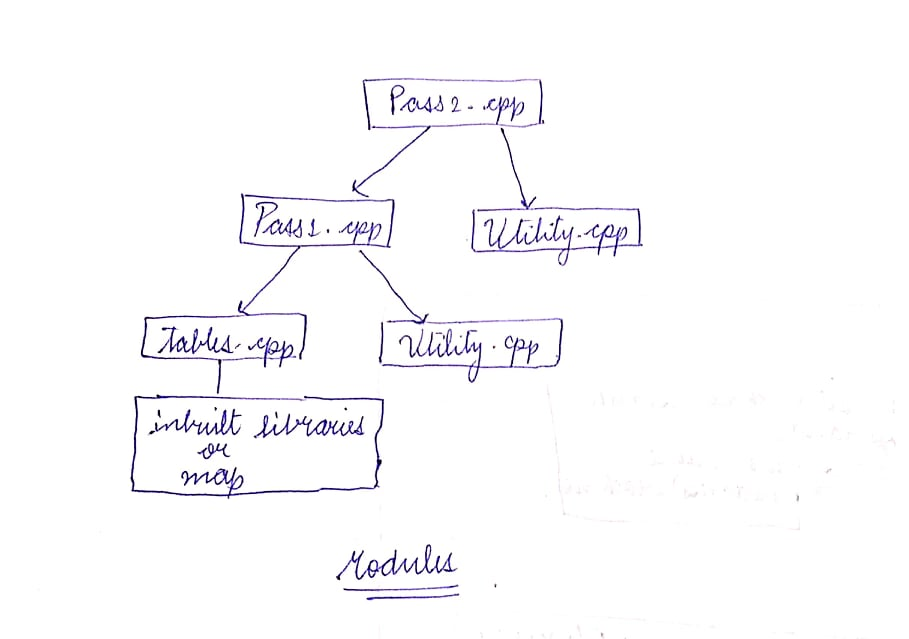 Pass2.cpp
Pass1.cpp
Utility.cpp
Tables.cpp
Utility.cpp
inbuilt libraries
or
map
Modules